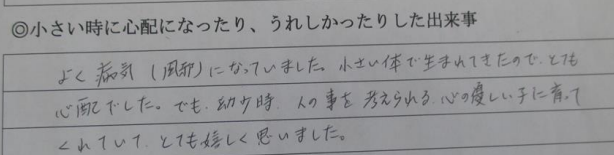 ◎小さい時に心配になったり、うれしかったりした出来事
よく病気(風邪)になっていました。小さい体で生まれてきたので、とても
心配でした。でも、幼少時、人の事を考えられる心の優しい子に育って
くれていて、とても嬉しく思いました。